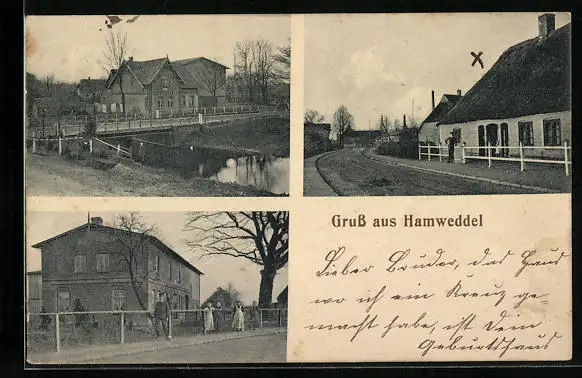 Gruß aus Hamweddel
Lieber Bruder, das Haus
wo ich ein Kreuz ge-
macht habe, ist Dein
Geburtshaus